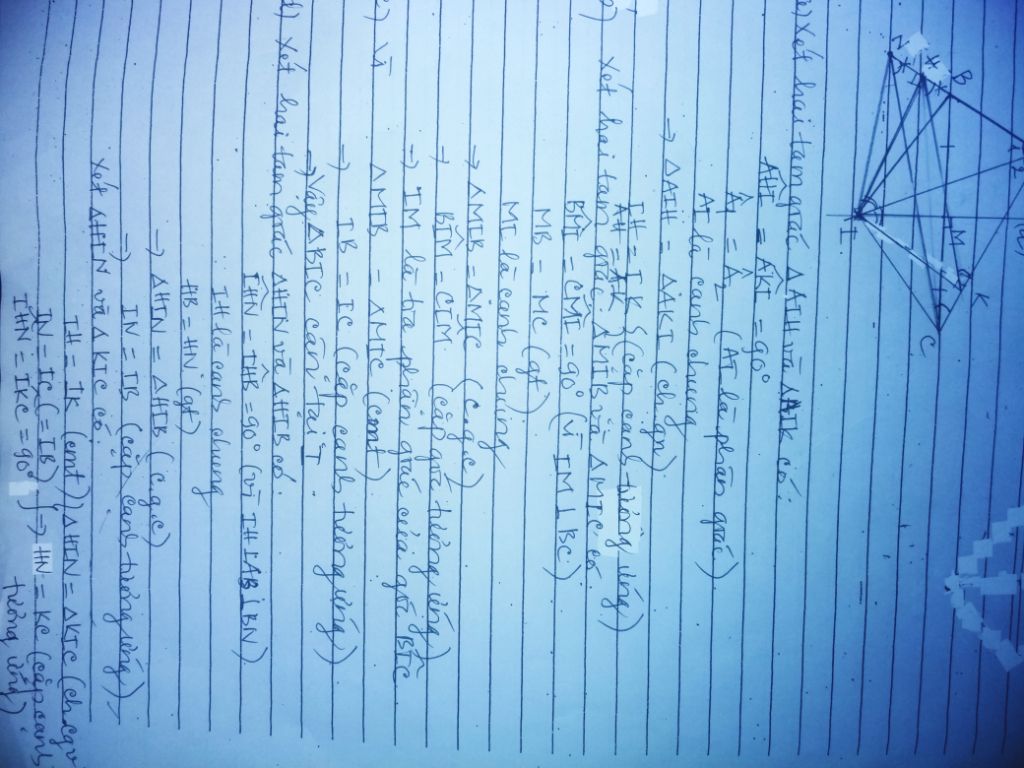 N
H
B
I
M
K
C
a) Xét hai tam giác ΔAIH và ΔAIK có:
AĤI = AK̂I = 90°
Â1 = Â2 (AI là phân giác)
AI là cạnh chung
=> ΔAIH = ΔAKI (ch.gn)
IH = IK
AH = AK } (cặp cạnh tương ứng)
b) Xét hai tam giác ΔMIB và ΔMIC có
BM̂I = CM̂I = 90° (vì IM ⊥ BC)
MB = MC (gt)
MI là cạnh chung
=> ΔMIB = ΔMIC (c.g.c)
=> BÎM = CÎM (cặp góc tương ứng)
=> IM là tia phân giác của góc BIC
c) Vì ΔMIB = ΔMIC (cmt)
=> IB = IC (cặp cạnh tương ứng)
=> Vậy ΔBIC cân tại I
d) Xét hai tam giác ΔHIN và ΔHIB có.
IĤN = IĤB = 90° (vì IH ⊥ AB ⊥ BN)
IH là cạnh chung
HB = HN (gt)
=> ΔHIN = ΔHIB (c.g.c)
=> IN = IB (cặp cạnh tương ứng)
Xét ΔHIN và ΔKIC có.
IH = IK (cmt) } ΔHIN = ΔKIC (ch.cgv
IN = IC (= IB) } => HN = KC (cặp cạnh
IĤN = IK̂C = 90° tương ứng)